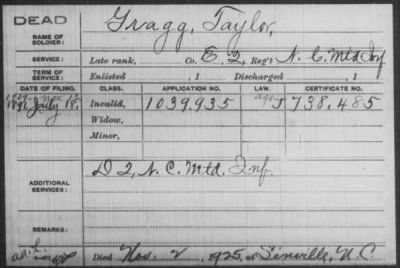 DEAD
NAME OF SOLDIER: Gragg, Taylor,
SERVICE: Late rank, Co. E, 2, Reg't N. C. Mtd Inf.
TERM OF SERVICE: Enlisted , 1 Discharged , 1
DATE OF FILING. CLASS. APPLICATION NO. LAW. CERTIFICATE NO.
1891, July 18. Invalid, 1039.935 738.485
Widow,
Minor,
ADDITIONAL SERVICES: D 2, N. C. Mtd. Inf.
REMARKS:
Died Nov. 2, 1925, at Linville, N. C.